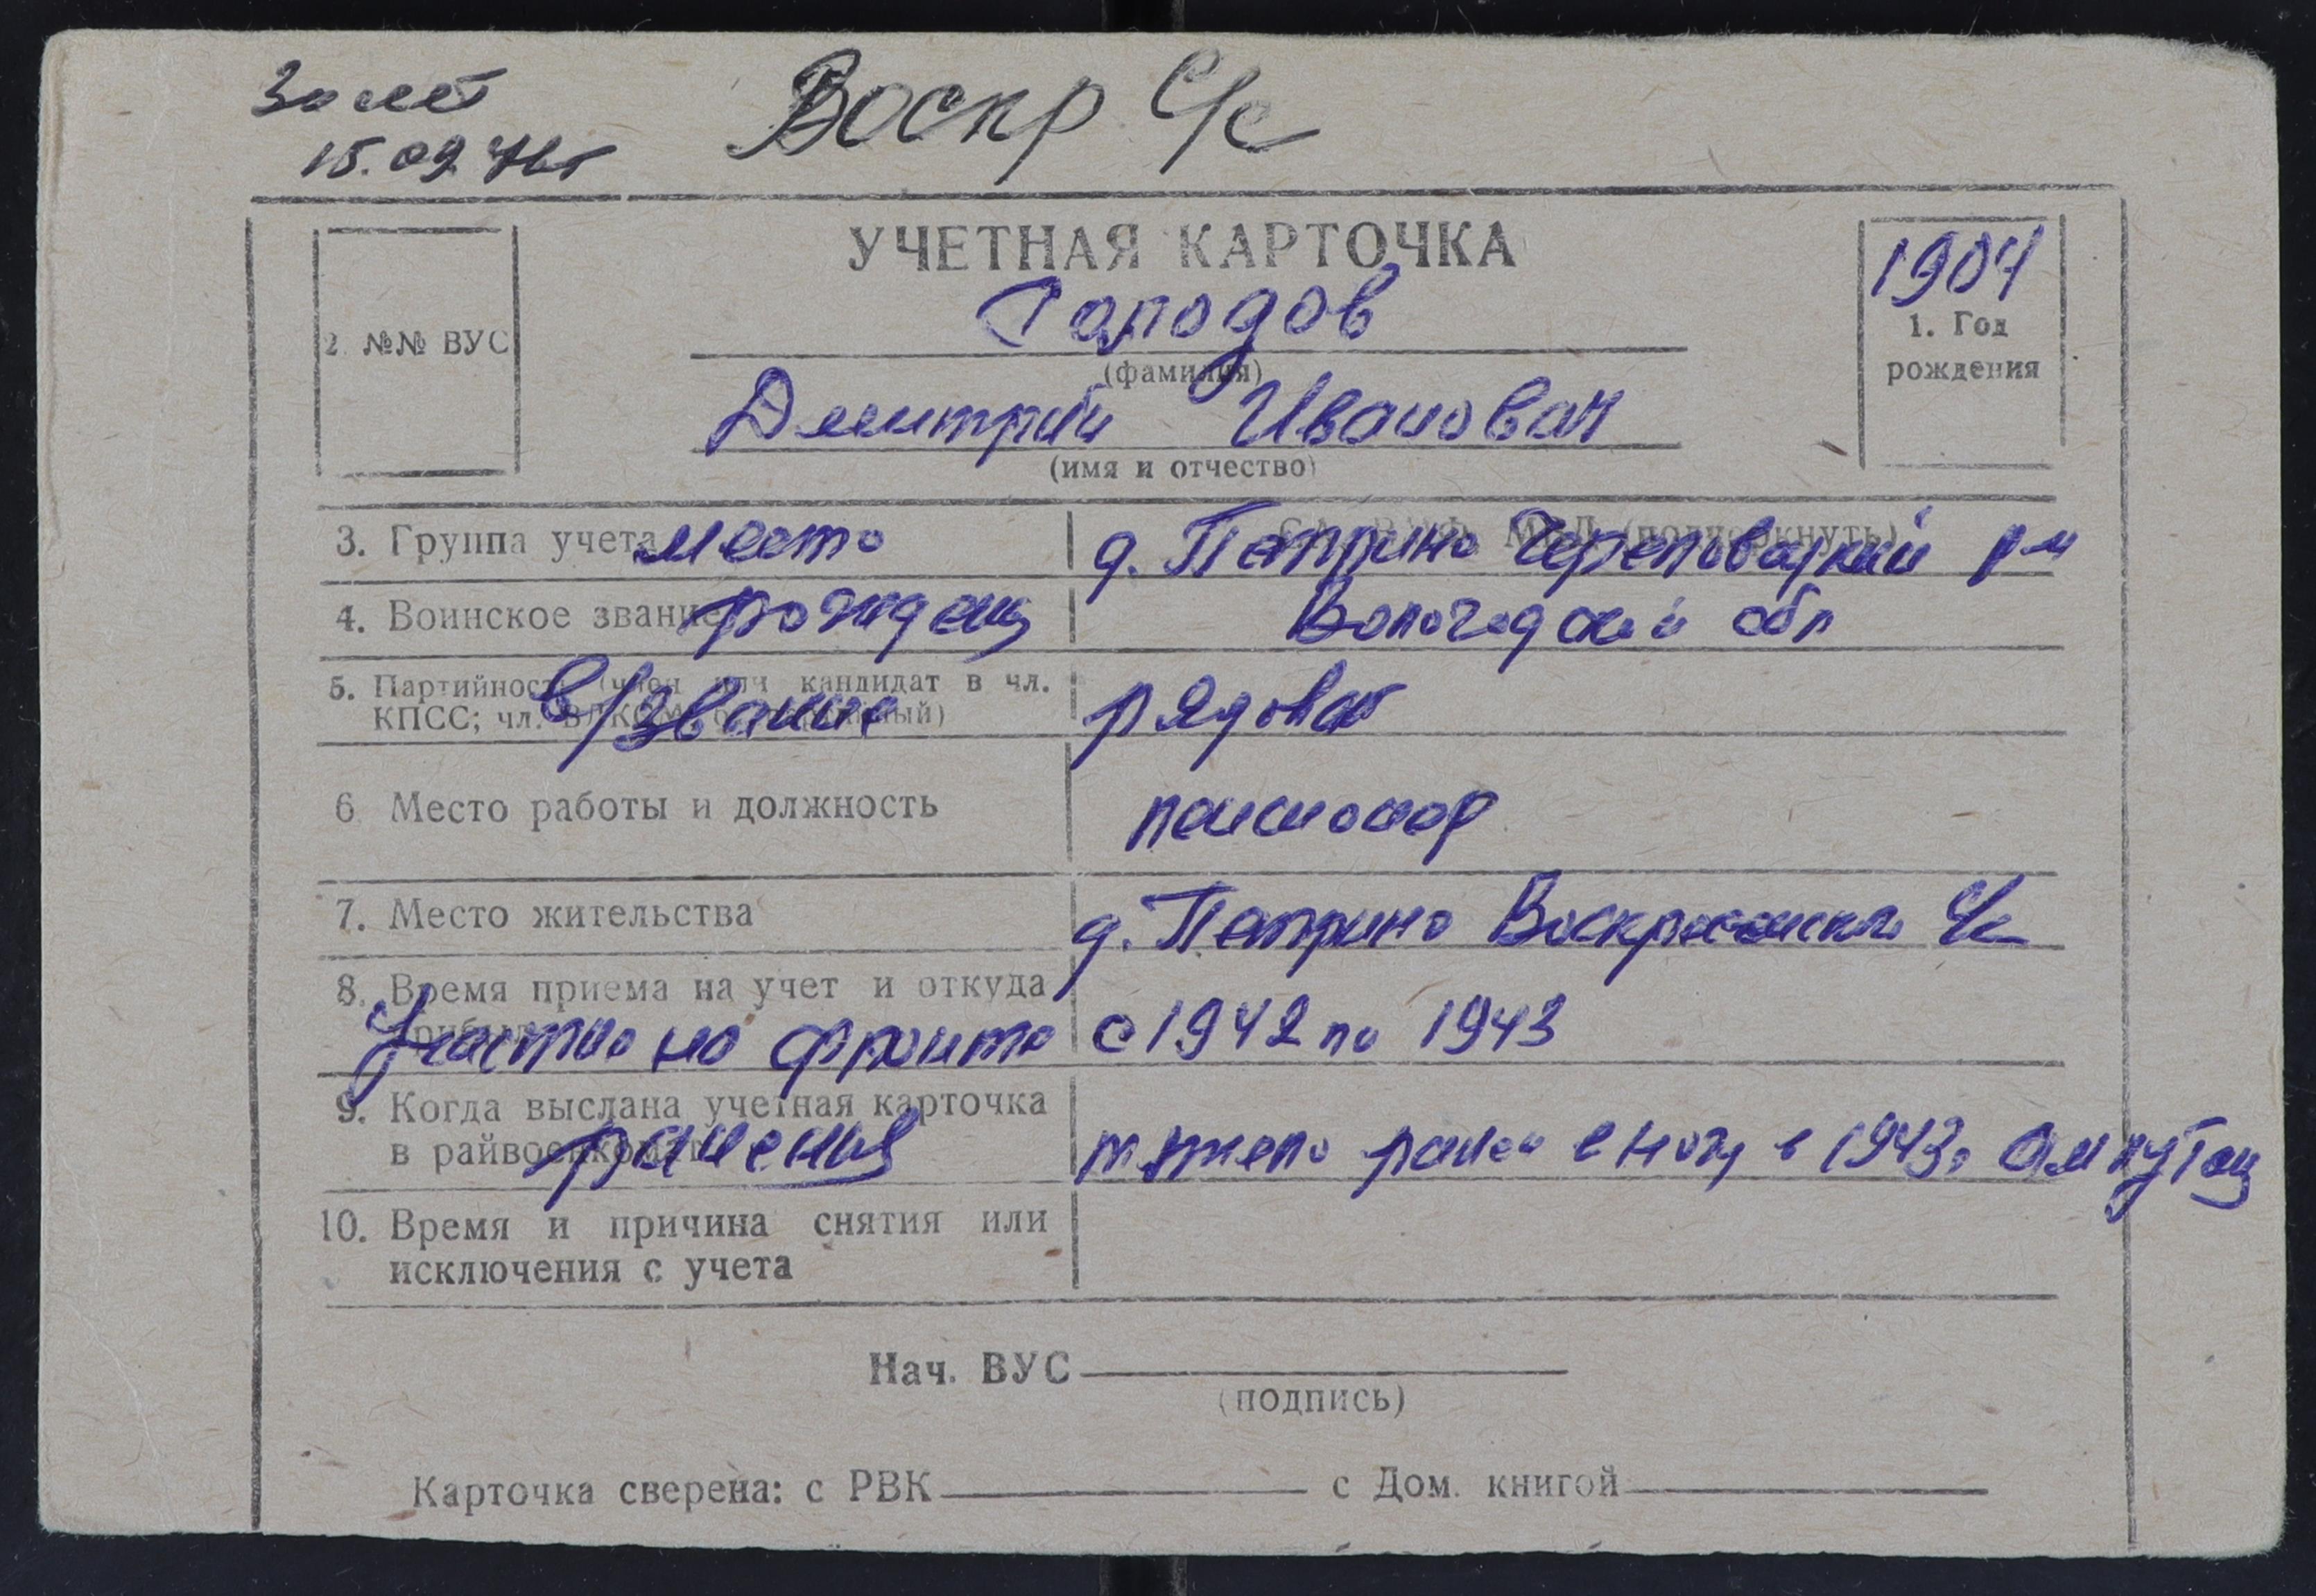 30 лет
15.09.76г
Воскр с/с
УЧЕТНАЯ КАРТОЧКА
1904
1. Год
рождения
2 №№ ВУС
Голодов
(фамилия)
Дмитрий Иванович
(имя и отчество)
3. Группа учета место д. Петрино Череповецкий р-н
4. Воинское звание рожден Вологодской обл
5. Партийность (член или кандидат в чл.
КПСС; чл. ВЛКСМ, беспартийный)
в/звание рядовой
6 Место работы и должность пенсионер
7. Место жительства д. Петрино Воскресенского с/с
8. Время приема на учет и откуда
Участие на фронте с 1942 по 1943
9. Когда выслана учетная карточка
в райвоенкомат ранения тяжело ранен в ногу в 1943г ампутац
10. Время и причина снятия или
исключения с учета
Нач. ВУС
(подпись)
Карточка сверена: с РВК с Дом. книгой